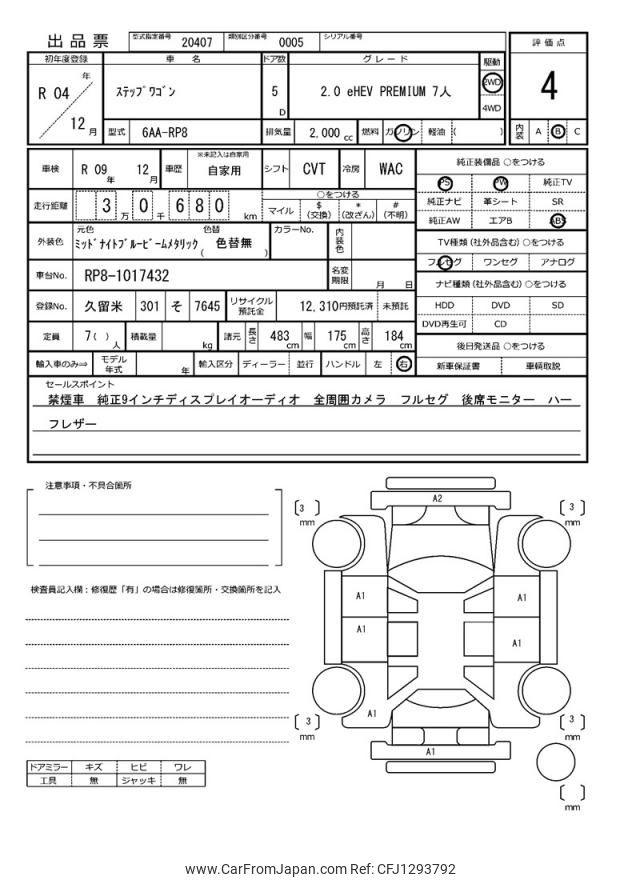 出品票 型式指定番号 20407 類別区分番号 0005 シリアル番号
評価点
4
内装 A B C
初年度登録 車名 ドア数 グレード 駆動
R 04 年 12 月 ステップワゴン 5 D 2.0 eHEV PREMIUM 7人 2WD
4WD
型式 6AA-RP8 排気量 2,000 cc 燃料 ガソリン 軽油 ( )
車検 R 09 年 12 月 車歴 ※未記入は自家用 自家用 シフト CVT 冷房 WAC
純正装備品 ○をつける
PS PW 純正TV
純正ナビ 革シート SR
純正AW エアB ABS
走行距離 3 万 0 千 6 8 0 km
○をつける
マイル $ (交換) * (改ざん) # (不明)
外装色 元色 ミッドナイトブルービームメタリック 色替 ( 色替無 ) カラーNo. 内装色
TV種類 (社外品含む) ○をつける
フルセグ ワンセグ アナログ
車台No. RP8-1017432 名変期限 月 日
ナビ種類 (社外品含む) ○をつける
HDD DVD SD
DVD再生可 CD
登録No. 久留米 301 そ 7645 リサイクル預託金 12,310円預託済 未預託
定員 7( ) 人 積載量 kg 諸元 長さ 483 cm 幅 175 cm 高さ 184 cm
後日発送品 ○をつける
新車保証書 車輌取説
輸入車のみ⇒ モデル年式 年 輸入区分 ディーラー 並行 ハンドル 左 右
セールスポイント
禁煙車 純正9インチディスプレイオーディオ 全周囲カメラ フルセグ 後席モニター ハー
フレザー
注意事項・不具合箇所
検査員記入欄:修復歴「有」の場合は修復箇所・交換箇所を記入
ドアミラー キズ ヒビ ワレ
工具 無 ジャッキ 無
A2
[ 3 ] mm
[ 3 ] mm
A1
A1
A1
A1
A1
[ 3 ] mm
[ 3 ] mm
A1
[ ] mm
www.CarFromJapan.com Ref: CFJ1293792